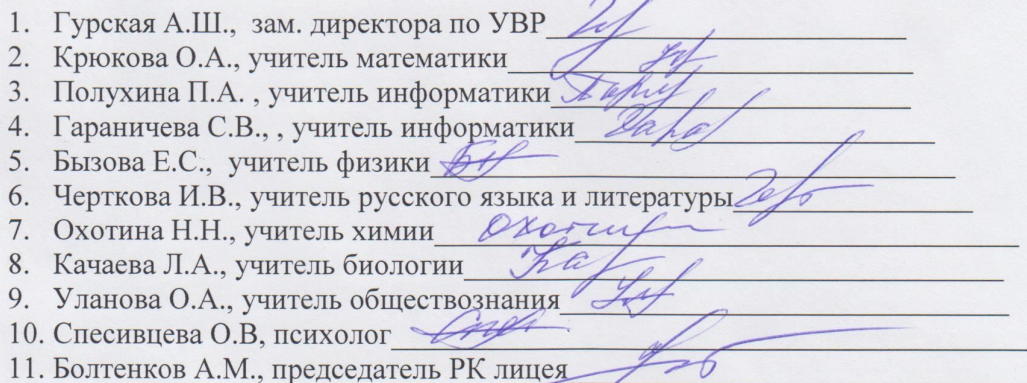 1. Гурская А.Ш., зам. директора по УВР
2. Крюкова О.А., учитель математики
3. Полухина П.А. , учитель информатики
4. Гараничева С.В., , учитель информатики
5. Бызова Е.С., учитель физики
6. Черткова И.В., учитель русского языка и литературы
7. Охотина Н.Н., учитель химии
8. Качаева Л.А., учитель биологии
9. Уланова О.А., учитель обществознания
10. Спесивцева О.В, психолог
11. Болтенков А.М., председатель РК лицея